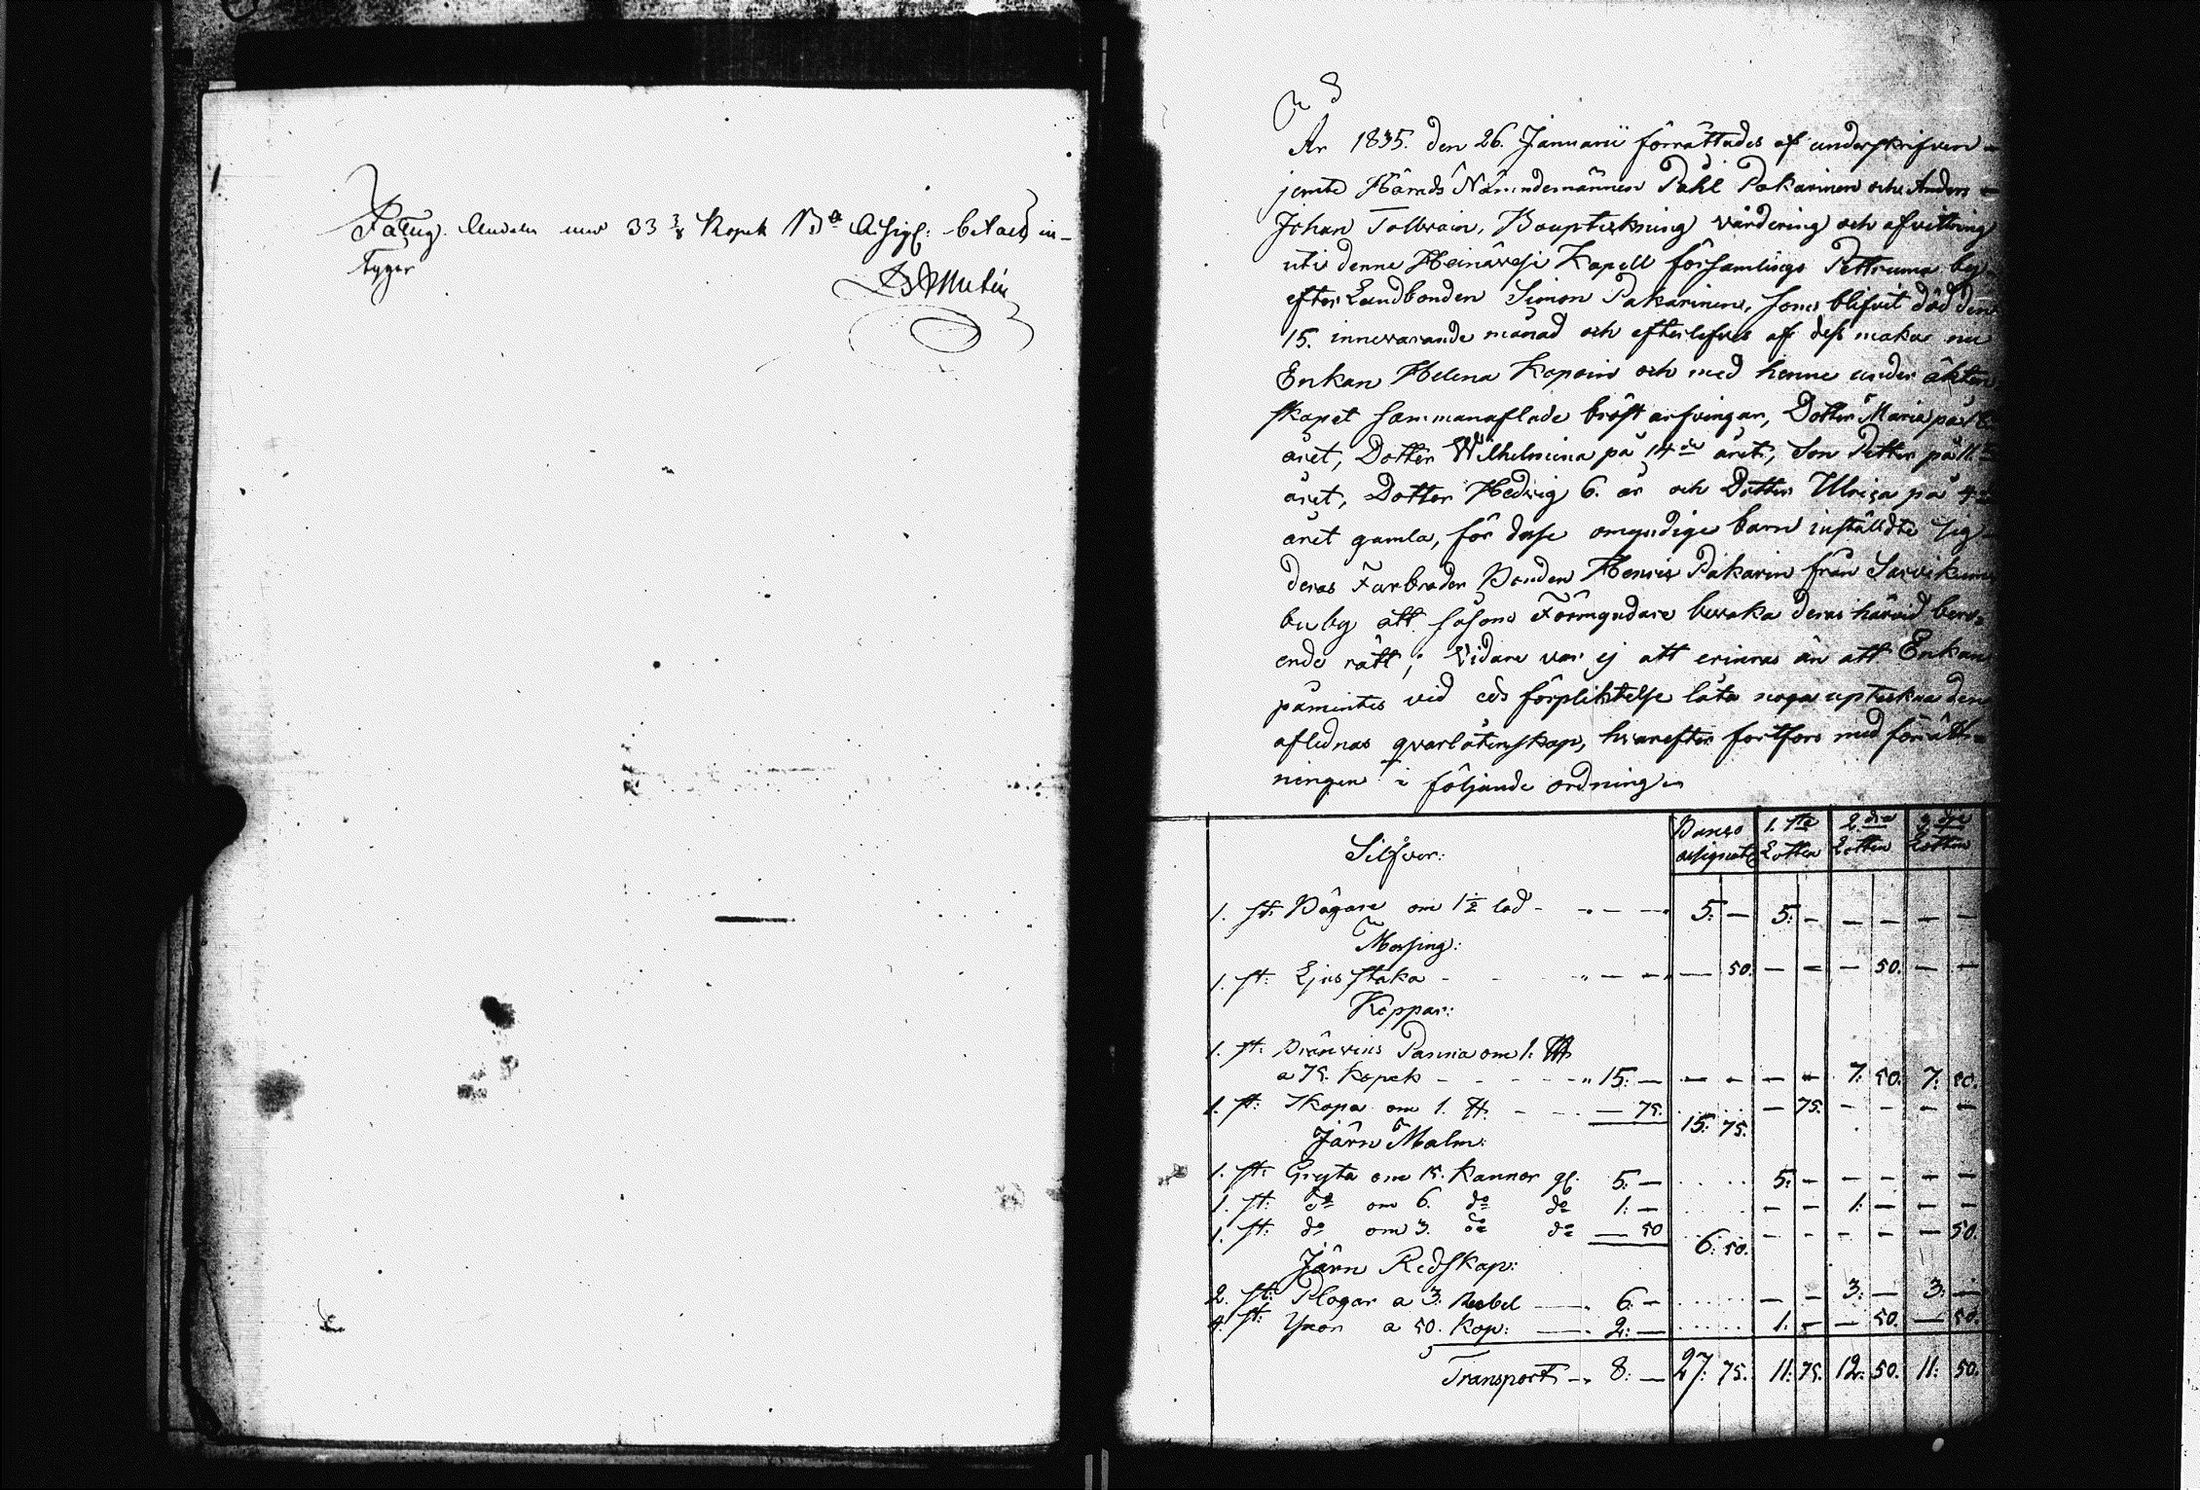 Fattig Andelen med 33 3/8 Kopek B:co Assign: betalt, in-
tygar
År 1835. den 26. Januarii förrättades af underskrifven
jemte Härads Nämndemännen Påhl Pakarinen och Anders
Johan Tolvain, Bouptekning värdering och afvittring
uti denne Heinävesi Kapell församlings Pettruma by
efter Landbonden Simon Pakarinen, som blifvit död den
15. innevarande månad och efterlefves af dess maka nu
Enkan Helena Kopoin och med henne under ächten
skapet sammanaflade bröst arfvingar, Dotter Maria på 18
året, Dotter Wilhelmina på 14de året, Son Petter på 11
året, Dotter Hedvig 6. år och Dotter Ulrica på 4
året gamla, för desse omyndige barn instälde sig
deras Farbroder Bonden Henric Pakarin från Sarvikum
bu by att såsom Förmyndare bevaka deras härvid bero-
ende rätt; Vidare var ej att erinras än att Enkan
påmintes vid eds förpliktelse låta noga uptekna den
aflednas qvarlåtenskap, hvarefter fortfors med förrätt-
ningen i följande ordning
Silfver: Banco assignat 1.sta Lotten 2.dra Lotten 3.dje Lotten
1. st: Bägare om 1 1/2 lod - - - 5: — 5: — — — — —
Messing:
1. st: Ljus staka - - — 50. — — — 50. — —
Koppar:
1. st: Bränvins Panna om 1. L℔
a 75. kopek - - - 15: — — — — — 7: 50. 7: 50.
1. st: Skopa om 1. ℔. - - — 75. 15: 75. — 75. — — — —
Järn Malm:
1. st: Gryta om 15. kannor gl. 5: — 5: — — — — —
1. st: do om 6. do do 1: — — — 1: — — —
1. st: do om 3. do do — 50 6: 50. — — — — — 50.
Järn Redskap:
2. st: Plogar a 3. Rubel — 6: — — — 3: — 3: —
4. st: Yxor a 50. Kop: — 2: — 1: — — 50. — 50.
Transport — 8: — 27: 75. 11: 75. 12: 50. 11: 50.